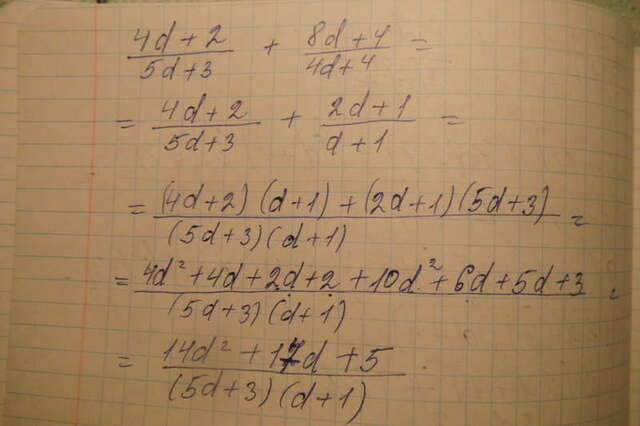 (4d+2)/(5d+3) + (8d+4)/(4d+4) =
= (4d+2)/(5d+3) + (2d+1)/(d+1) =
= ((4d+2)(d+1)+(2d+1)(5d+3))/((5d+3)(d+1)) =
= (4d²+4d+2d+2+10d²+6d+5d+3)/((5d+3)(d+1)) =
= (14d²+17d+5)/((5d+3)(d+1))